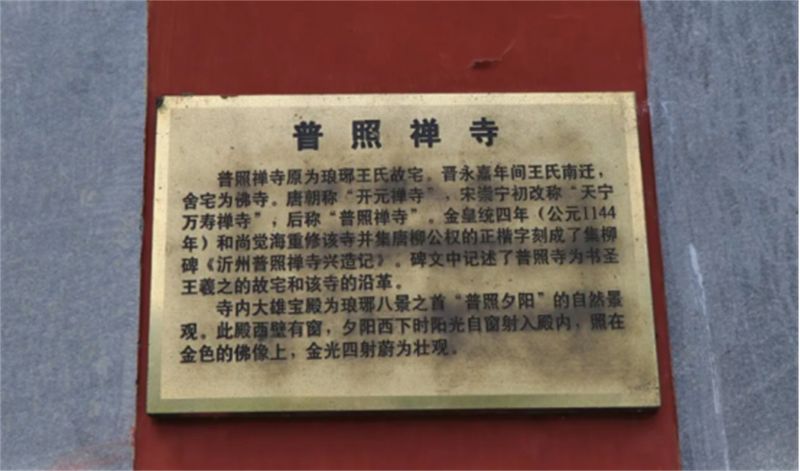 普照禅寺
普照禅寺原为琅琊王氏故宅。晋永嘉年间王氏南迁，
舍宅为佛寺。唐朝称“开元禅寺”，宋崇宁初改称“天宁
万寿禅寺”，后称“普照禅寺”。金皇统四年（公元1144
年）和尚觉海重修该寺并集唐柳公权的正楷字刻成了集柳
碑《沂州普照禅寺兴造记》。碑文中记述了普照寺为书圣
王羲之的故宅和该寺的沿革。
寺内大雄宝殿为琅琊八景之首“普照夕阳”的自然景
观。此殿酉壁有窗，夕阳西下时阳光自窗射入殿内，照在
金色的佛像上，金光四射蔚为壮观。